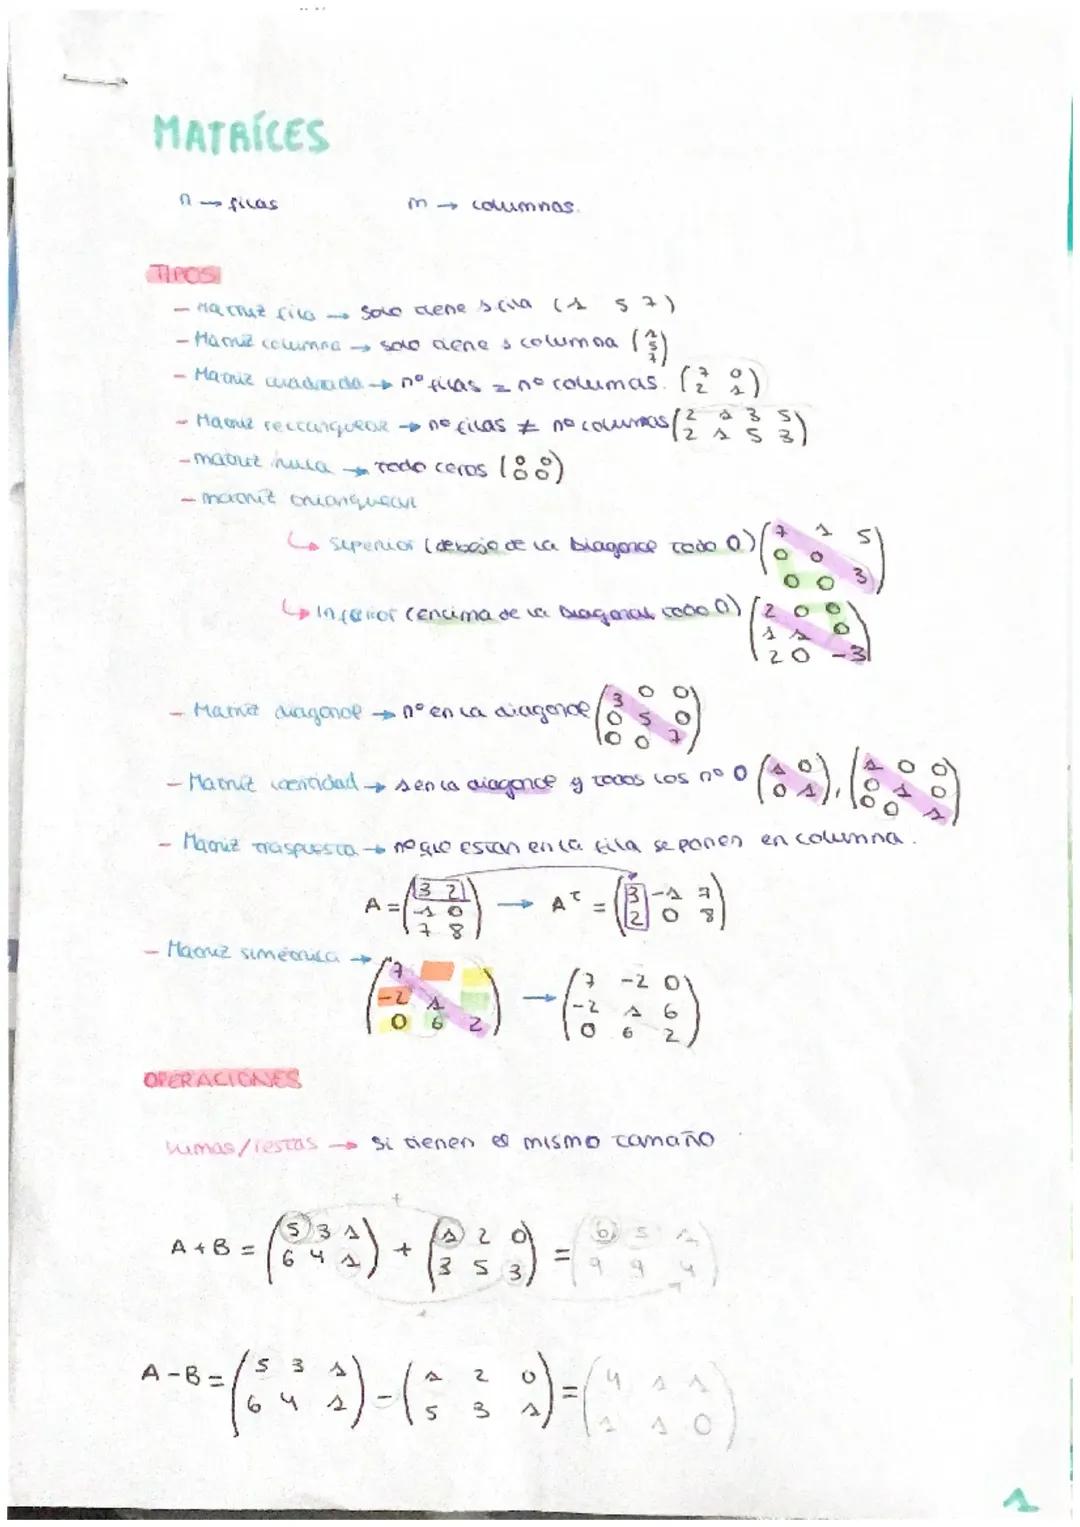 MATRÍCES
n → filas m → columnas.
TIPOS
- Matriz fila → solo tiene 1 fila (1 5 7)
- Matriz columna → solo tiene 1 columna (1 5 7)
- Matriz cuadrada → nº filas = nº columas. (7 0
2 1)
- Matriz rectangular → nº filas ≠ nº columas (2 1 3 5
2 1 5 3)
- matriz nula → todo ceros (0 0
0 0)
- matriz triangular
↳ Superior (debajo de la diagonal todo 0) (7 1 5
0 0
0 0 3)
↳ Inferior (encima de la diagonal todo 0) (2 0 0
1 1 0
2 0 -3)
- Matriz diagonal → nº en la diagonal (3 0 0
0 5 0
0 0 7)
- Matriz identidad → 1 en la diagonal y todos los nº 0 (1 0
0 1), (1 0 0
0 1 0
0 0 1)
- Matriz traspuesta → nº que estan en la fila se ponen en columna.
A = (3 2
-1 0
7 8) → Aᵗ = (3 -1 7
2 0 8)
- Matriz simétrica → (7
-2 1
0 6 2) → (7 -2 0
-2 1 6
0 6 2)
OPERACIONES
sumas/restas → si tienen el mismo tamaño
+
A + B = (5 3 1
6 4 1) + (1 2 0
3 5 3) = (6 5 1
9 9 4)
A - B = (5 3 1
6 4 1) - (1 2 0
5 3 1) = (4 1 1
1 1 0)
1